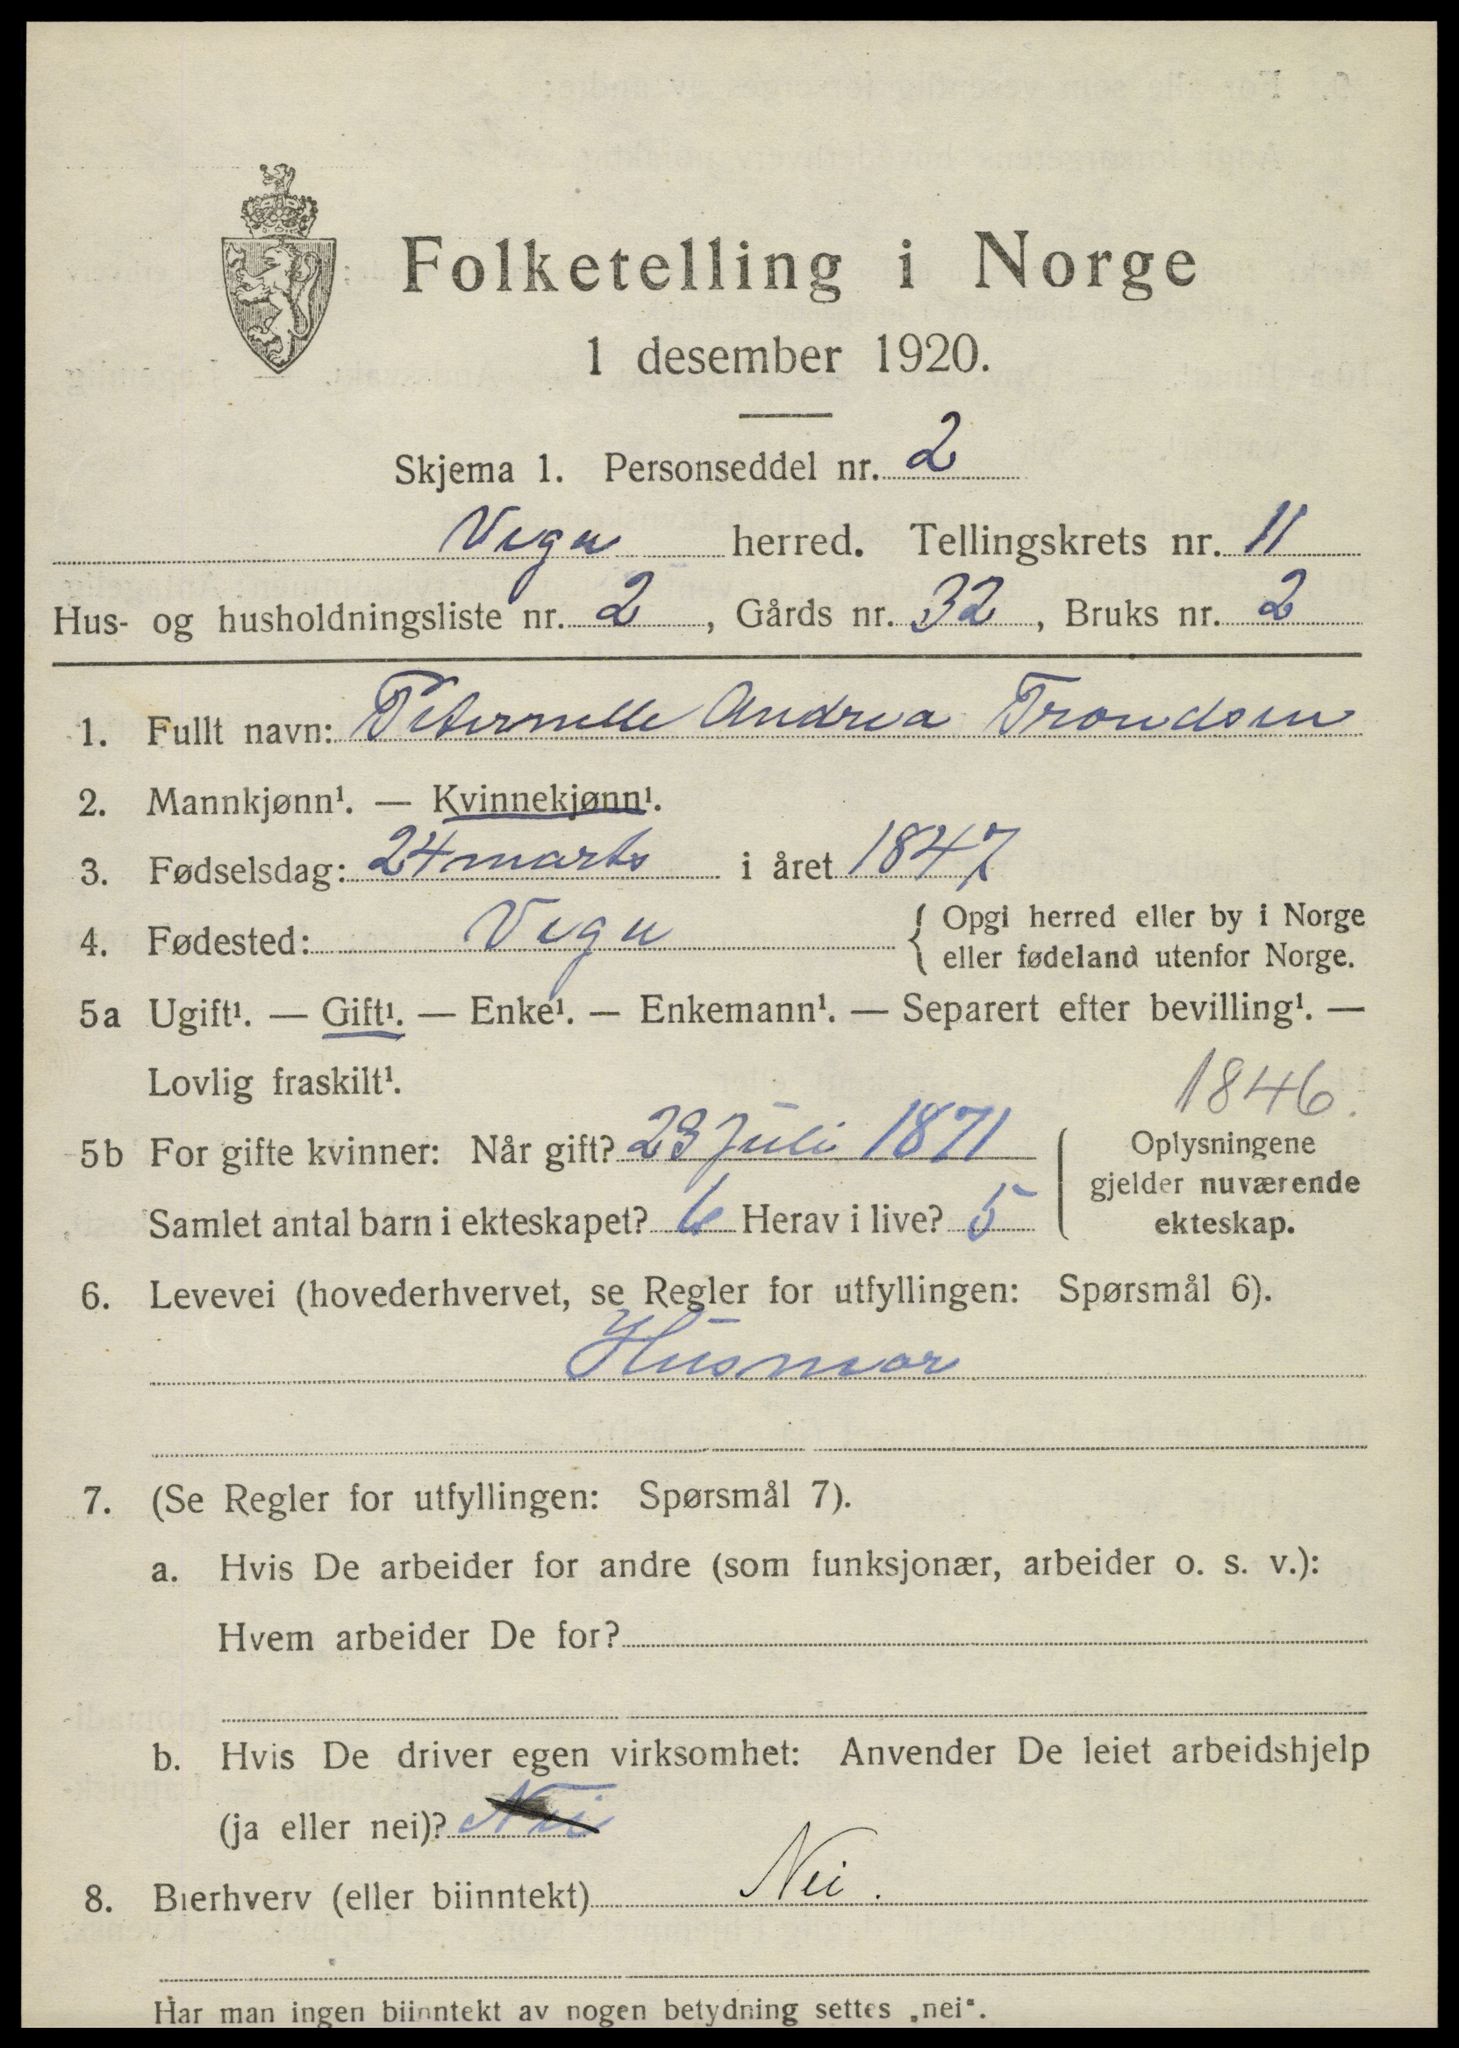 Folketelling i Norge
1 desember 1920.
Skjema 1. Personseddel nr. 2
Vega herred. Tellingskrets nr. 11
Hus- og husholdningsliste nr. 2, Gårds nr. 32, Bruks nr. 2
1. Fullt navn: Peternelle Andrea Trondsen
2. Mannkjønn¹. — Kvinnekjønn¹.
3. Fødselsdag: 24 marts i året 1847
4. Fødested: Vega { Opgi herred eller by i Norge
eller fødeland utenfor Norge.
5a Ugift¹. — Gift¹. — Enke¹. — Enkemann¹. — Separert efter bevilling¹. —
Lovlig fraskilt¹.
1846.
5b For gifte kvinner: Når gift? 23 Juli 1871
Samlet antal barn i ekteskapet? 6 Herav i live? 5
Oplysningene
gjelder nuværende
ekteskap.
6. Levevei (hovederhvervet, se Regler for utfyllingen: Spørsmål 6).
Husmor
7. (Se Regler for utfyllingen: Spørsmål 7).
a. Hvis De arbeider for andre (som funksjonær, arbeider o. s. v.):
Hvem arbeider De for?
b. Hvis De driver egen virksomhet: Anvender De leiet arbeidshjelp
(ja eller nei)? Nei
8. Bierhverv (eller biinntekt) Nei.
Har man ingen biinntekt av nogen betydning settes „nei“.